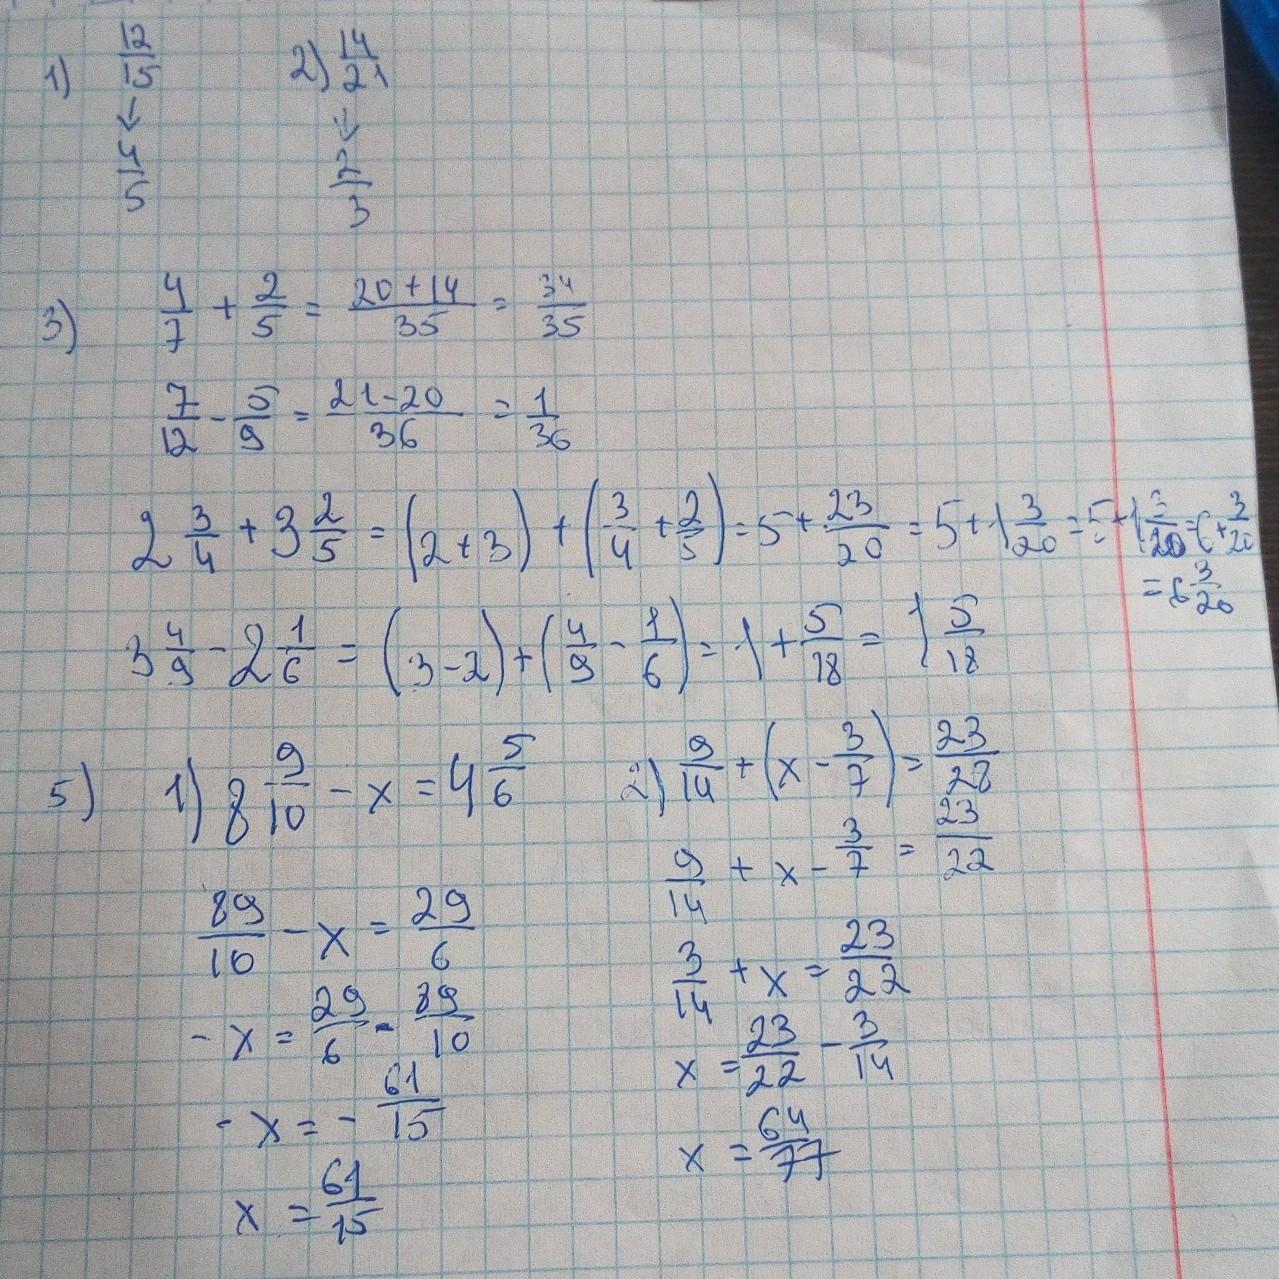 1) 12/15 → 4/5
2) 14/21 → 2/3
3) 4/7 + 2/5 = (20+14)/35 = 34/35
7/12 - 5/9 = (21-20)/36 = 1/36
2 3/4 + 3 2/5 = (2+3) + (3/4 + 2/5) = 5 + 23/20 = 5 + 1 3/20 = 5 + 1 3/20 = 6 + 3/20
= 6 3/20
3 4/9 - 2 1/6 = (3-2) + (4/9 - 1/6) = 1 + 5/18 = 1 5/18
5) 1) 8 9/10 - x = 4 5/6
89/10 - x = 29/6
- x = 29/6 - 89/10
- x = - 61/15
x = 61/15
2) 9/14 + (x - 3/7) = 23/28
9/14 + x - 3/7 = 23/22
3/14 + x = 23/22
x = 23/22 - 3/14
x = 64/77